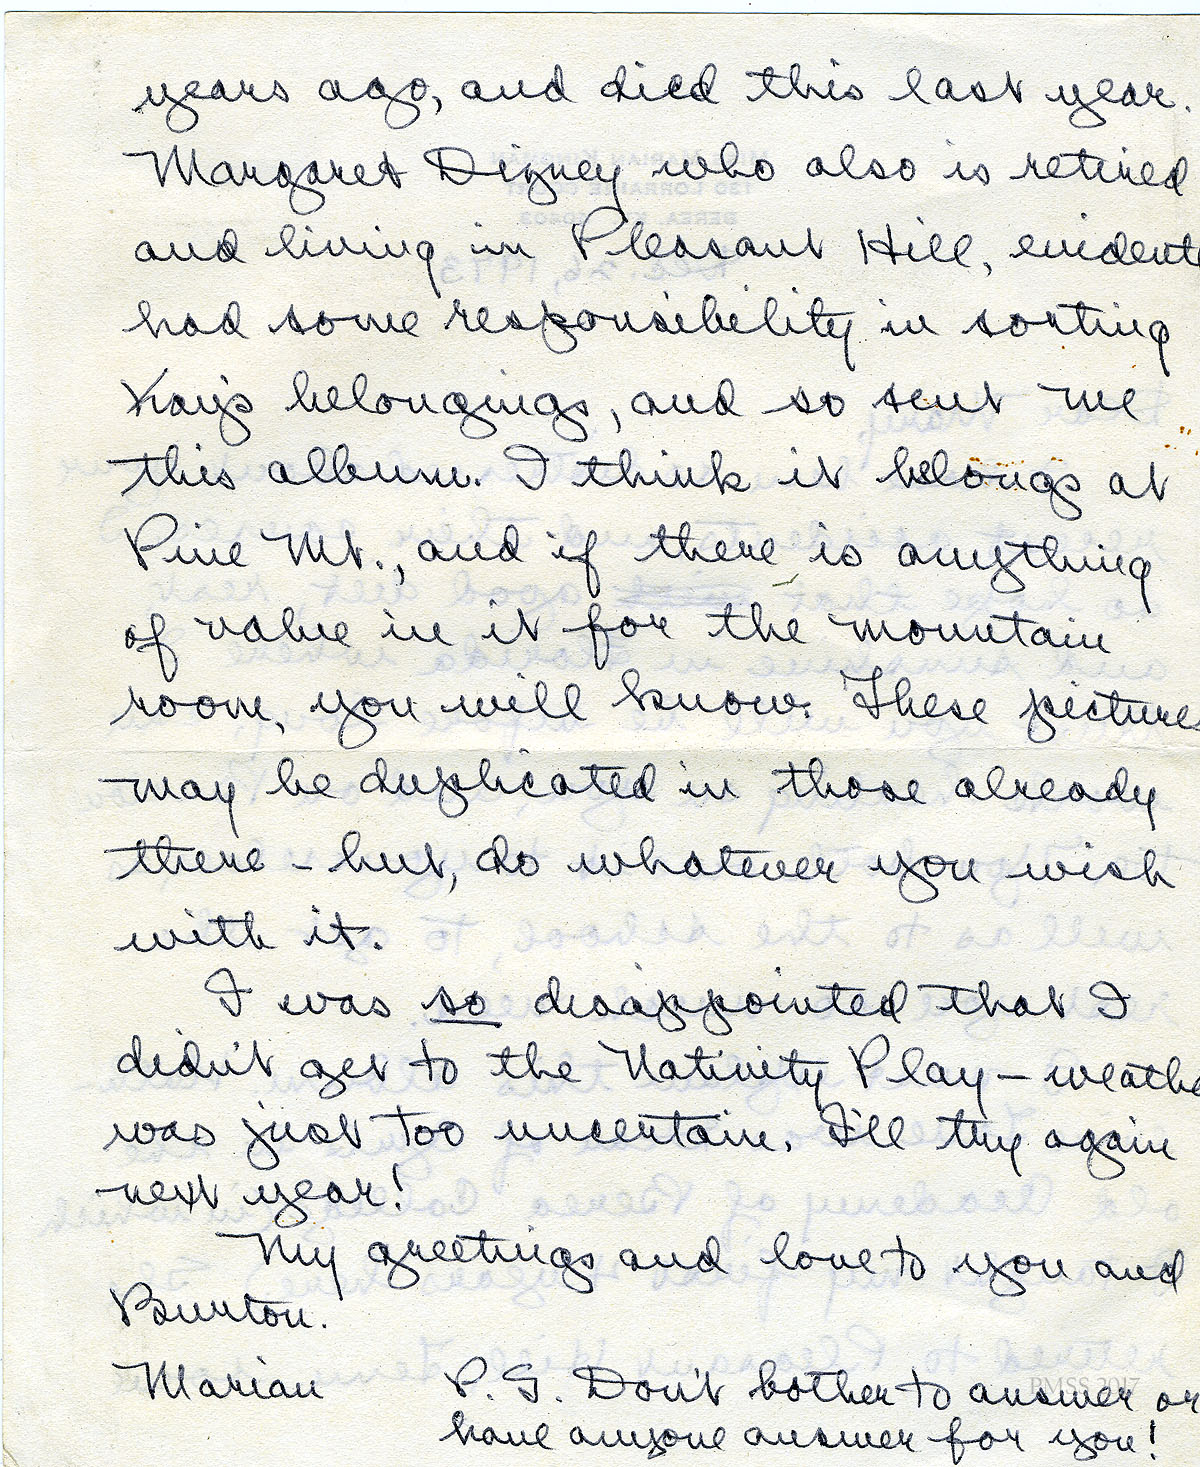 years ago, and died this last year.
Margaret Digney who also is retired
and living in Pleasant Hill, evident
had some responsibility in sorting
Kay's belongings, and so sent me
this album. I think it belongs at
Pine Mt., and if there is anything
of value in it for the mountain
room, you will know. These pictures
may be duplicated in those already
there – but, do whatever you wish
with it.
I was so disappointed that I
didn't get to the Nativity Play – weathe
was just too uncertain. I'll try again
next year!
My greetings and love to you and
Burton.
Marian
P.S. Don't bother to answer or
have anyone answer for you!
PMSS 2017